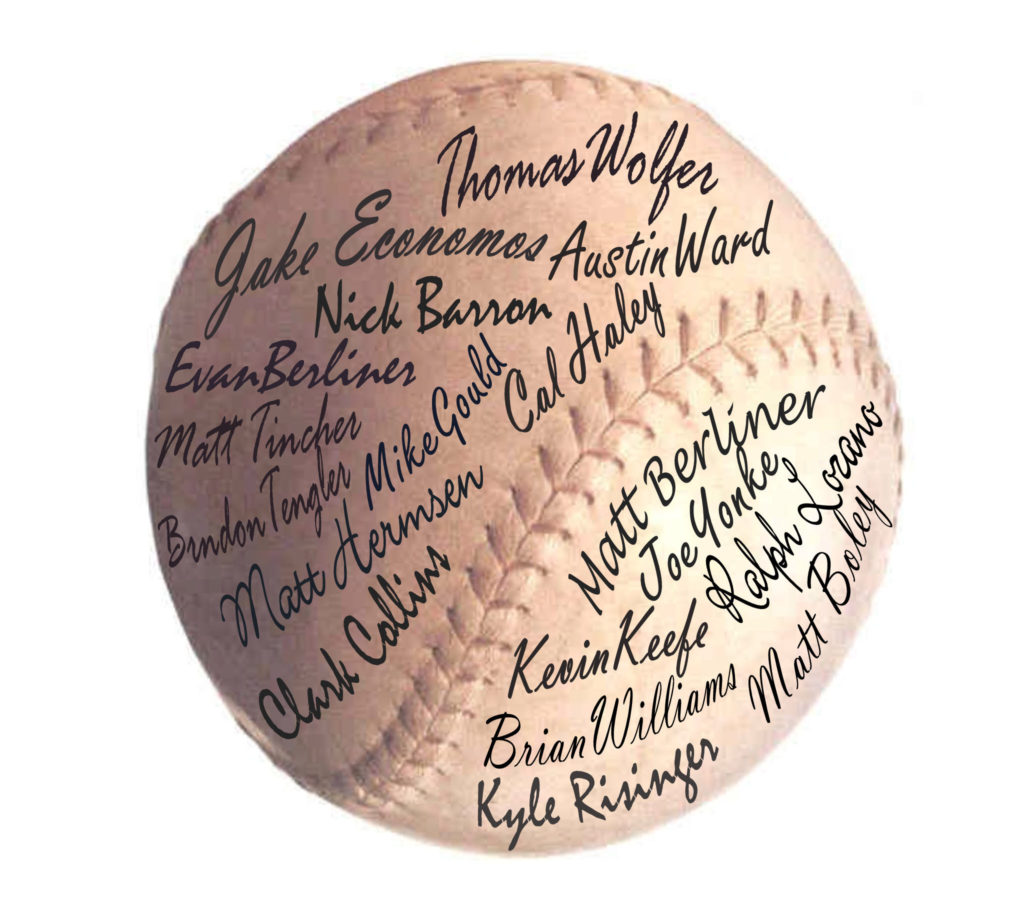 Thomas Wolfer
Jake Economos
Austin Ward
Nick Barron
Cal Haley
Evan Berliner
Mike Gould
Matt Tincher
Brndon Tengler
Matt Hermsen
Clark Collins
Matt Berliner
Joe Yonke
Ralph Lozano
Matt Boley
Kevin Keefe
Brian Williams
Kyle Risinger